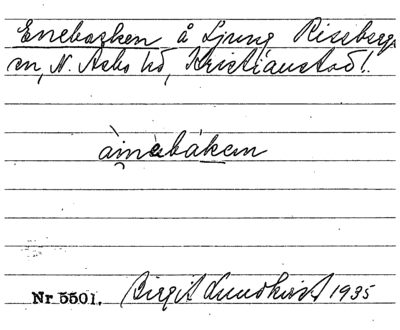 Enebacken å Ljung Riseberga
sn, N. Åsbo hd, Kristianstad l.
àinəbákən
Nr 5501. Birgit Lundkvist 1935